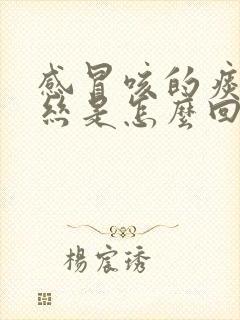 感冒咳的痰
絲是怎麼回
楊宸琇